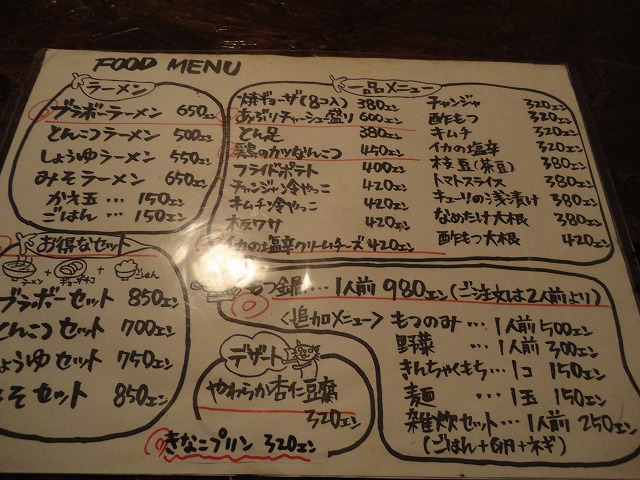 FOOD MENU
ラーメン
ブラボーラーメン 650エン
とんこつラーメン 500エン
しょうゆラーメン 550エン
みそラーメン 650エン
かえ玉 … 150エン
ごはん … 150エン
お得なセット
ラーメン + ギョーザ + ごはん
ブラボーセット 850エン
とんこつセット 700エン
しょうゆセット 750エン
みそセット 850エン
一品メニュー
焼ギョーザ(8コ入) 380エン
あぶりチャーシュー盛り 600エン
とん足 380エン
鶏のガツなんこつ 450エン
フライドポテト 400エン
チャンジャ冷やっこ 420エン
キムチ冷やっこ 420エン
板ワサ 420エン
イカの塩辛クリームチーズ 420エン
チャンジャ 320エン
酢もつ 320エン
キムチ 320エン
イカの塩辛 320エン
枝豆(茶豆) 380エン
トマトスライス 380エン
キューリの浅漬け 380エン
なめたけ大根 380エン
酢もつ大根 420エン
もつ鍋… 1人前 980エン(ご注文は2人前より)
<追加メニュー>
もつのみ … 1人前 500エン
野菜 … 1人前 300エン
きんちゃくもち… 1コ 150エン
麺 … 1玉 150エン
雑炊セット… 1人前 250エン
(ごはん+卵+ネギ)
デザート
やわらか杏仁豆腐
320エン
きなこプリン 320エン